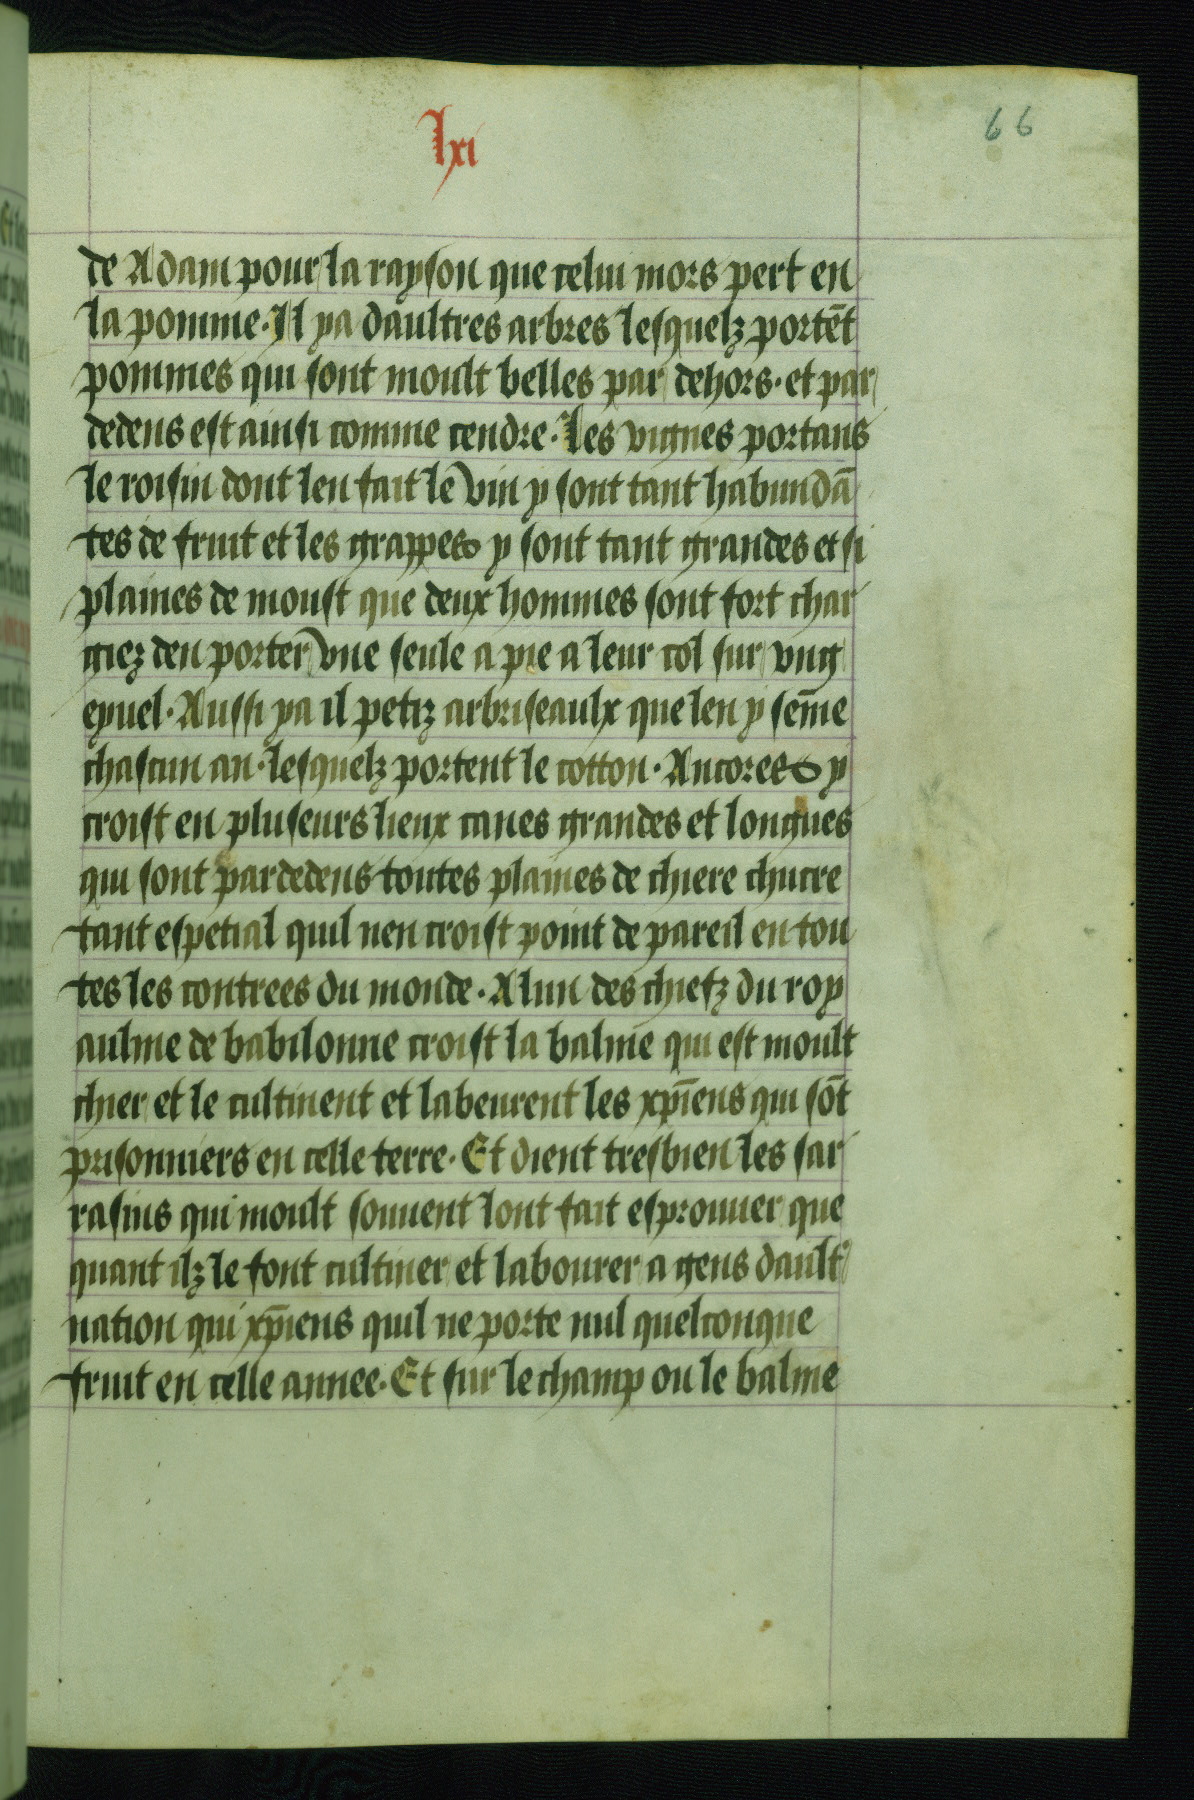 lxi
66
de Adam pour la rayson que celui mors pert en
la pomme. Il ya daultres arbres lesquelz portēt
pommes qui sont moult belles par dehors. et par
dedens est ainsi comme cendre. Les vignes portans
le roisin dont len fait le vin y sont tant habundā
tes de fruit et les grappes y sont tant grandes et si
plaines de moust que deux hommes sont fort char
giez den porter vne seule a pie a leur col sur vng
eynel. Aussi ya il petiz arbriseaulx que len y sēme
chascun an. lesquelz portent le cotton. Ancores y
croist en pluseurs lieux canes grandes et longues
qui sont pardedens toutes plaines de chiere chucre
tant espetial quil nen croist point de pareil en tou
tes les contrees du monde. A lun des chiefz du roy
aulme de babilonne croist la balme qui est moult
chier et le cultiuent et labeurent les xp̄iens qui sōt
prisonniers en celle terre. Et dient tresbien les sar
rasins qui moult souuent lont fait esprouuer que
quant ilz le font cultiuer et labourer a gens dault'
nation qui xp̄iens quil ne porte nul quelconque
fruit en celle annee. Et sur le champ ou le balme